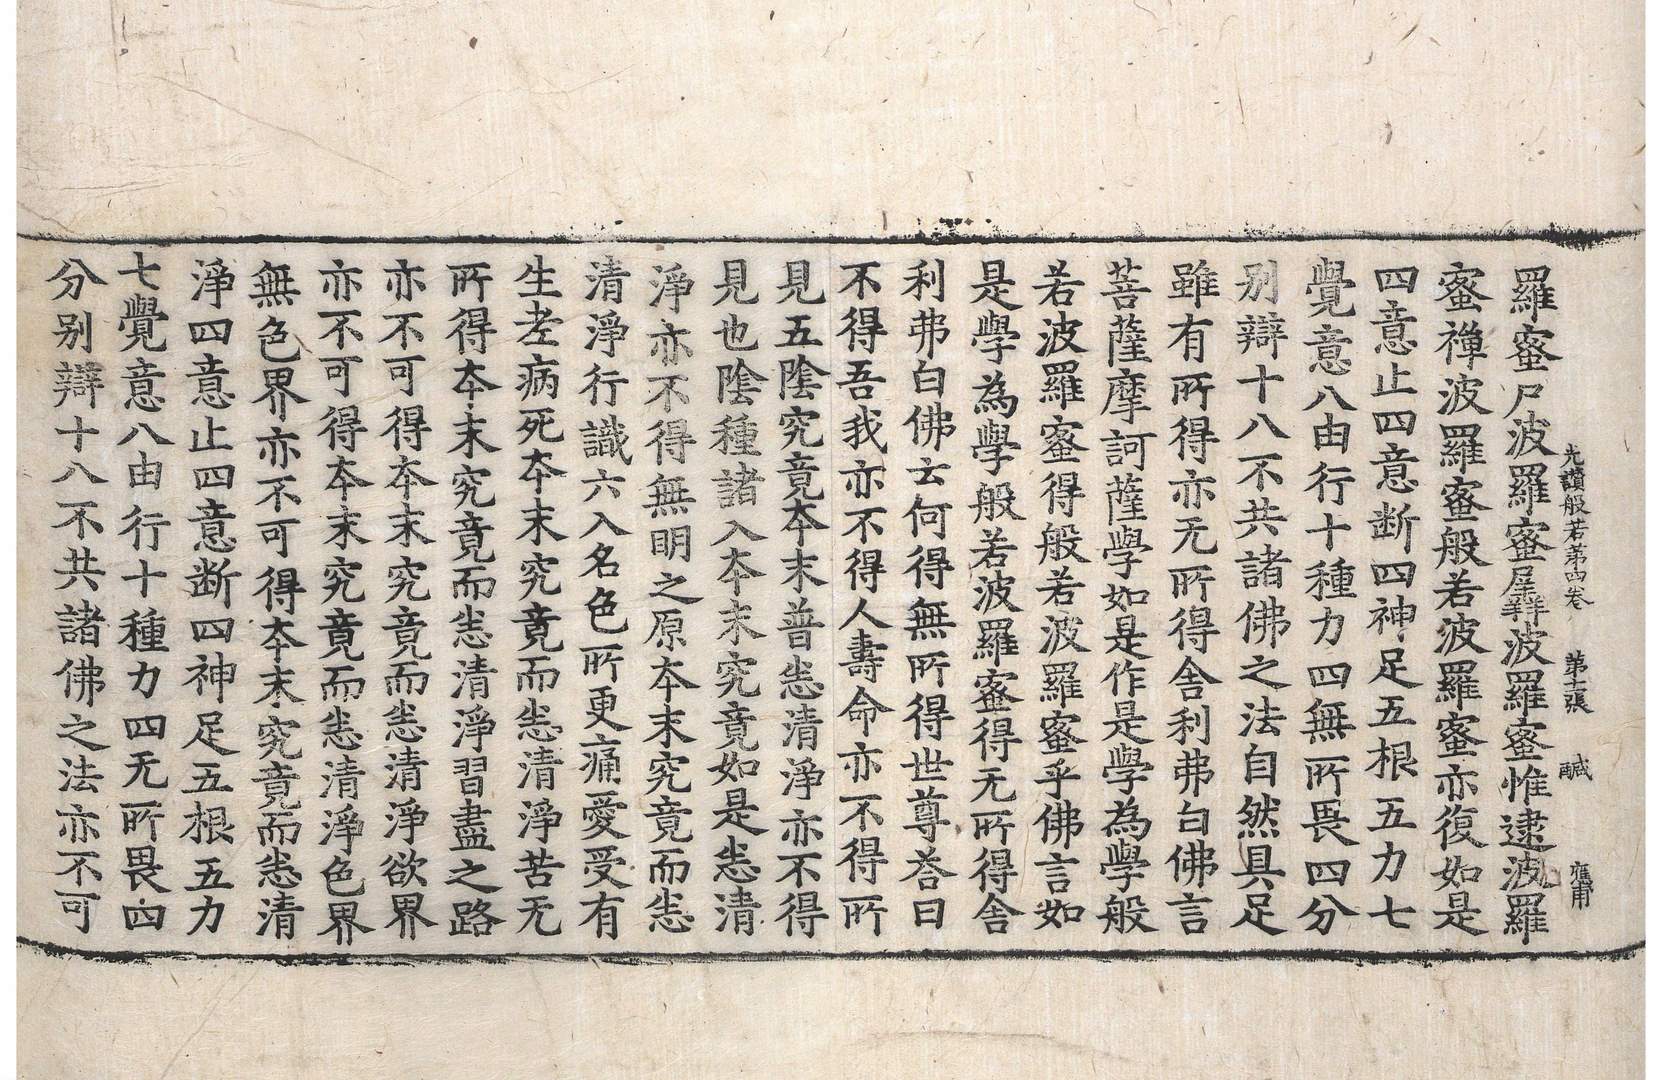 光讚般若第四卷 第七張 醎
羅蜜尸波羅蜜羼波羅蜜惟逮波羅
蜜禪波羅蜜般若波羅蜜亦復如是
四意止四意断四神足五根五力七
覺意八由行十種力四無所畏四分
别辯十八不共諸佛之法自然具足
雖有所得亦无所得舍利弗白佛言
菩薩摩訶薩學如是作是學為學般
若波羅蜜得般若波羅蜜乎佛言如
是學為學般若波羅蜜得无所得舍
利弗白佛云何得無所得世尊荅曰
不得吾我亦不得人壽命亦不得所
見五陰究竟夲末普恙清淨亦不得
見也陰種諸入夲末究竟如是恙清
淨亦不得無明之原夲末究竟而恙
清淨行識六入名色所更痛愛受有
生老病死夲末究竟而恙清淨苦无
所得夲末究竟而恙清淨習盡之路
亦不可得夲末究竟而恙清淨欲界
亦不可得夲末究竟而恙清淨色界
無色界亦不可得夲末究竟而恙清
淨四意止四意断四神足五根五力
七覺意八由行十種力四无所畏四
分别辯十八不共諸佛之法亦不可